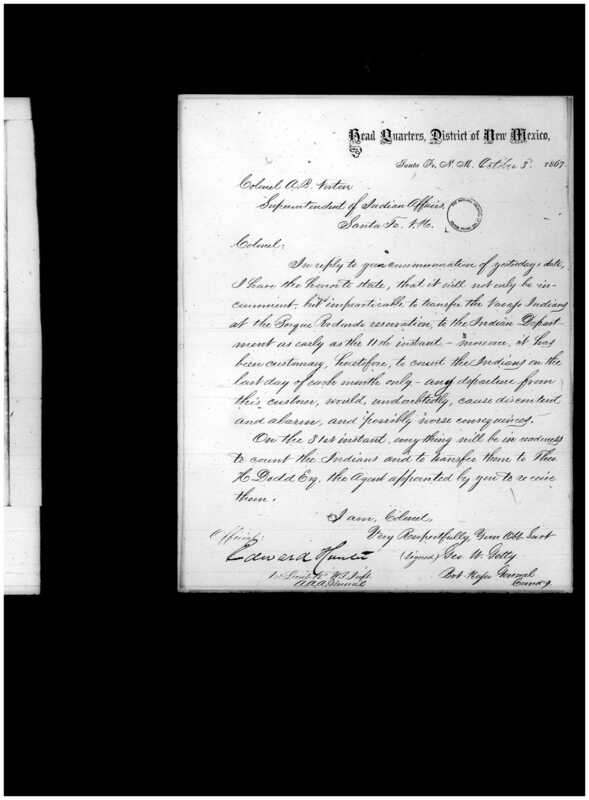 Head Quarters, District of New Mexico,
Santa Fe, N. M. October 8" 1867
Colonel A. B. Norton
Superintendent of Indian Affairs
Santa Fe. N. M.
Colonel:
In reply to your communication of yesterdays date,
I have the honor to state, that it will not only be in-
convenient, but impracticable to transfer the Navajo Indians
at the Bosque Redondo reservation, to the Indian Depart-
ment as early as the 11th instant – moreover, it has
been customary, heretofore, to count the Indians on the
last day of each month only – any departure from
this custom, would, undoubtedly, cause discontent
and alarm, and possibly worse consequences.
On the 31st instant, every thing will be in readiness
to count the Indians and to transfer them to Theo
H. Dodd Esq. the Agent appointed by you to receive
them.
I am, Colonel,
Very Respectfully, Your Obt. Servt
(Signed) Geo W. Getty
Bvt. Major General
Comdg
Official:
Edward Hunter
1st Lieut. Inft.
A.A.A. General